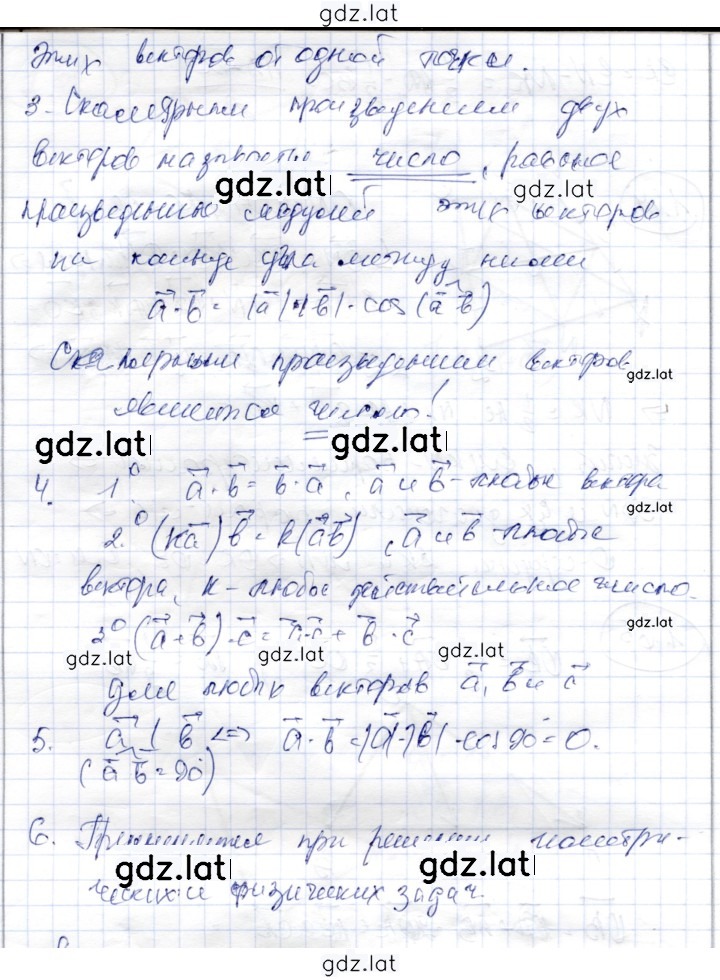 gdz.lat
этих векторов от одной точки.
3. Скалярным произведением двух
векторов называется число, равное
gdz.lat gdz.lat
произведению модулей этих векторов
на косинус угла между ними
a⃗·b⃗ = |a⃗|·|b⃗|·cos(a⃗ b⃗)
Скалярным произведением векторов
gdz.lat
является число!
gdz.lat
4. 1⁰ a⃗·b⃗ = b⃗·a⃗, a⃗ и b⃗ - любые вектора
gdz.lat
2.⁰ (ka⃗)b⃗ = k(a⃗b⃗), a⃗ и b⃗ - любые
вектора, k - любое действительное число.
3⁰ (a⃗+b⃗)·c⃗ = a⃗·c⃗ + b⃗·c⃗
gdz.lat
gdz.lat gdz.lat gdz.lat
для любых векторов a⃗, b⃗ и c⃗
5. a⃗ ⊥ b⃗ <=> a⃗·b⃗ = |a⃗|·|b⃗|·cos90° = 0.
(a⃗ b⃗ = 90°)
6. Применяется при решении геометри-
gdz.lat gdz.lat
ческих и физических задач.
gdz.lat